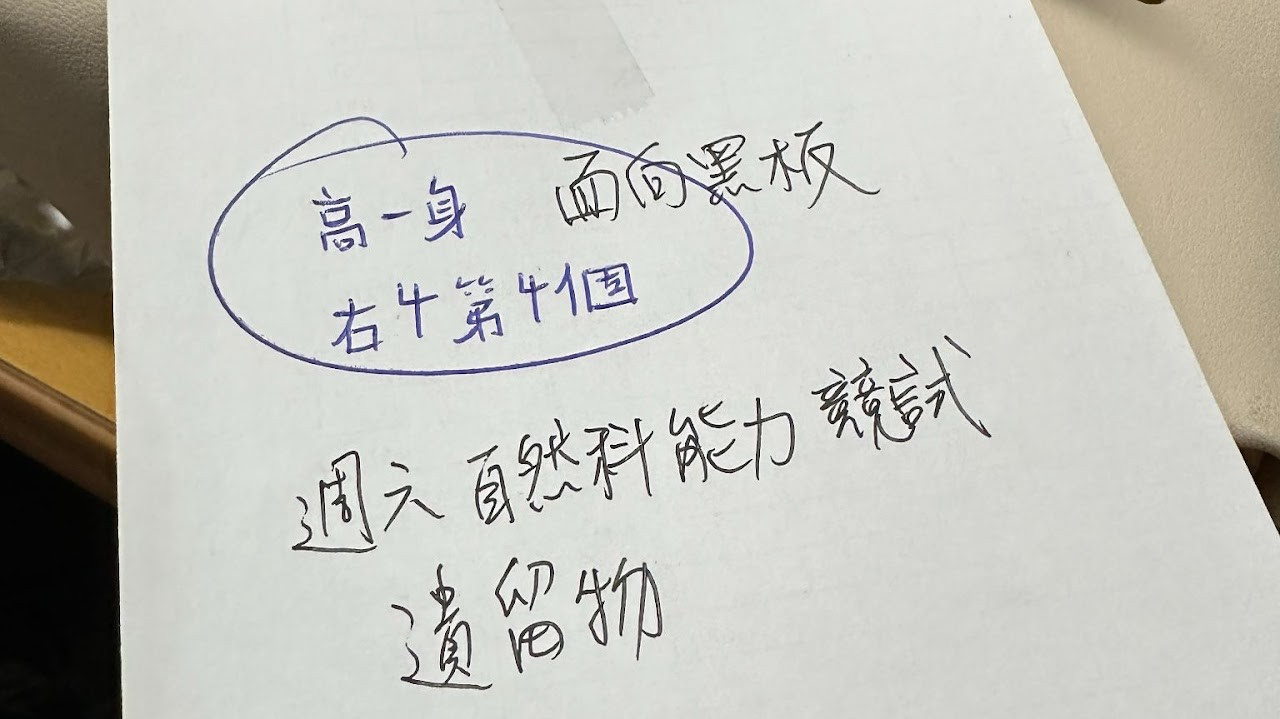 高一身 面向黑板
右4第4個
週六自然科能力競試
遺留物